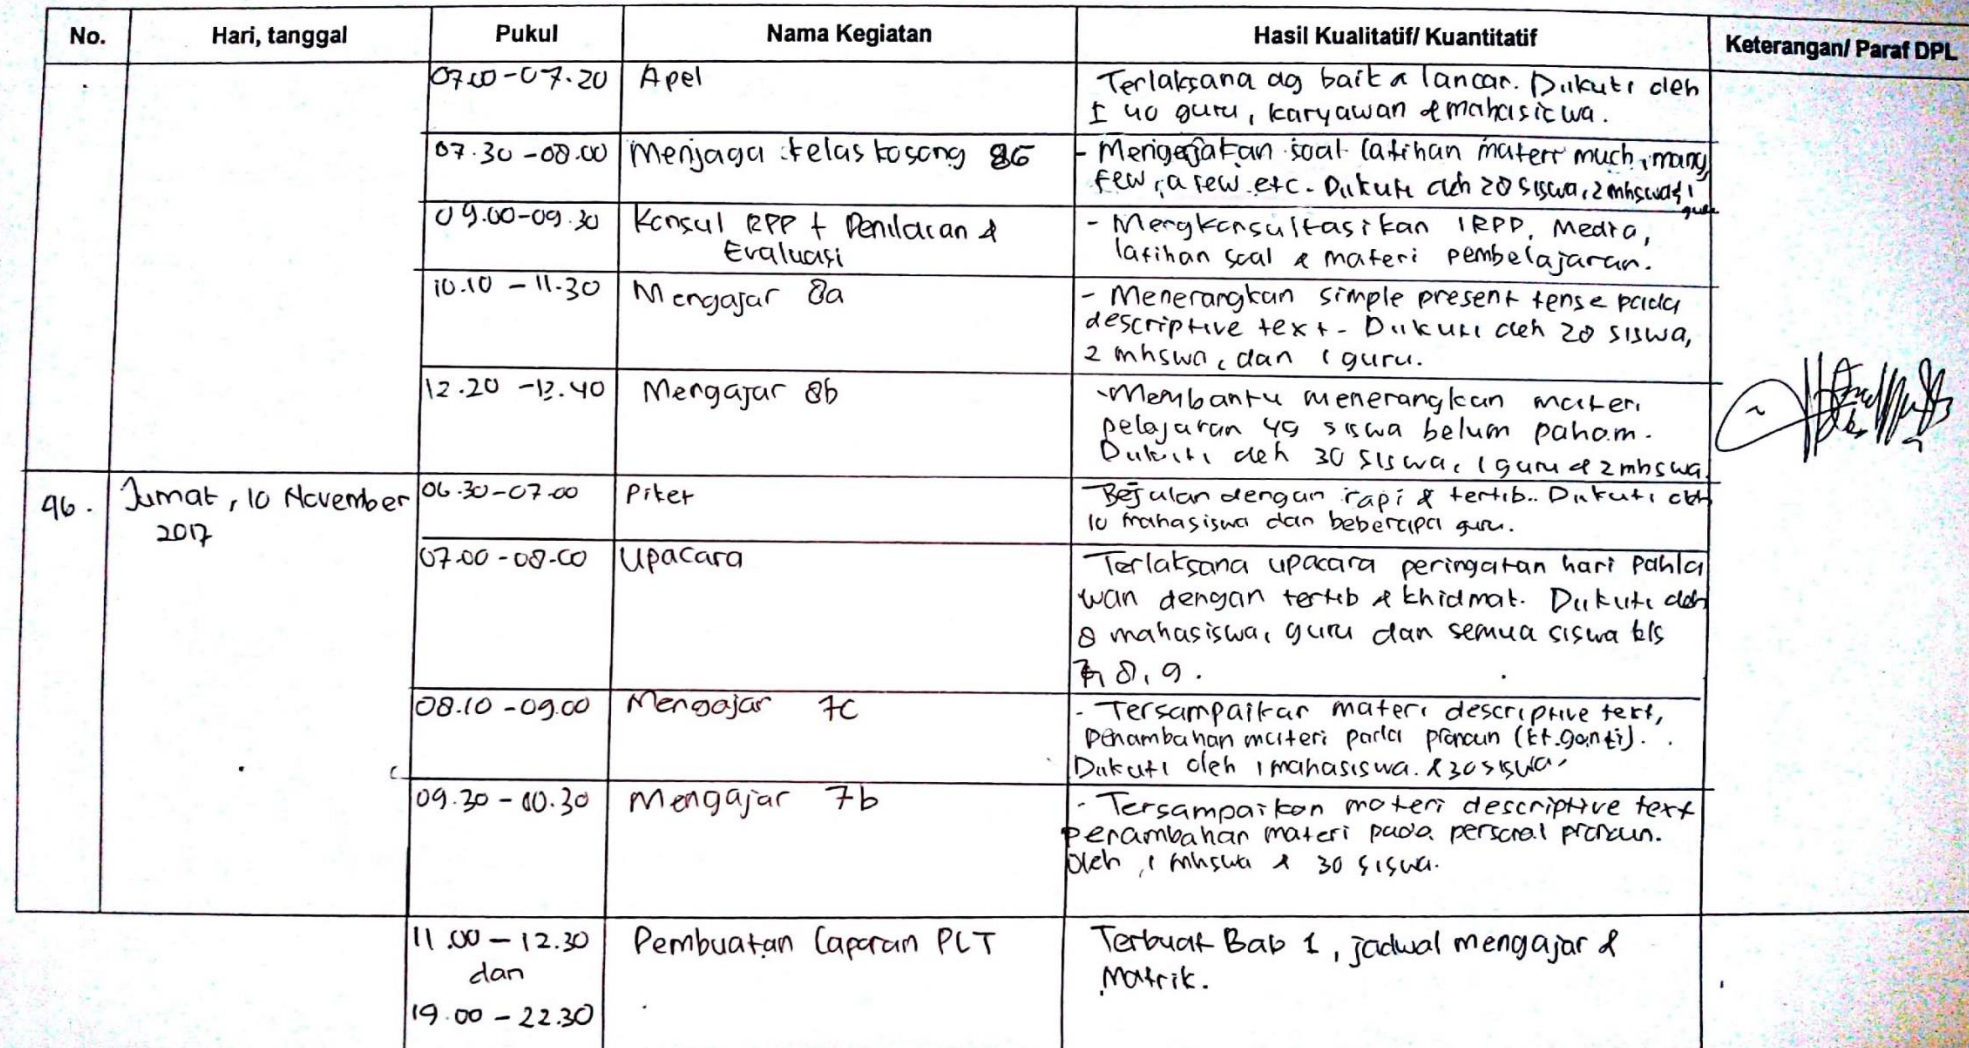 No. Hari, tanggal Pukul Nama Kegiatan Hasil Kualitatif/ Kuantitatif Keterangan/ Paraf DPL
07.00-07.20 Apel Terlaksana dg baik & lancar. Diikuti oleh
± 40 guru, karyawan & mahasiswa.
07.30-08.00 Menjaga kelas kosong 8G - Mengerjakan soal latihan materi much, many,
few, a few etc. Diikuti oleh 20 siswa, 2 mhswa & 1
guru
09.00-09.30 Konsul RPP + Penilaian & - Mengkonsultasikan 1 RPP, Media,
Evaluasi latihan soal & materi pembelajaran.
10.10 - 11.30 Mengajar 8a - Menerangkan simple present tense pada
descriptive text - Diikuti oleh 20 siswa,
2 mhswa, dan 1 guru.
12.20 - 13.40 Mengajar 8b - Membantu menerangkan materi
pelajaran yg siswa belum paham.
Diikuti oleh 30 siswa, 1 guru & 2 mhswa.
46. Jumat, 10 November 06.30-07.00 Piket Bejalan dengan rapi & tertib.. Diikuti oleh
2017 10 mahasiswa dan beberapa guru.
07.00-08.00 Upacara Terlaksana upacara peringatan hari pahla
wan dengan tertib & khidmat. Diikuti oleh
8 mahasiswa, guru dan semua siswa kls
7, 8, 9.
08.10-09.00 Mengajar 7C - Tersampaikan materi descriptive text,
penambahan materi pada pronoun (kt.ganti).
Diikuti oleh 1 mahasiswa. & 30 siswa.
09.30-10.30 Mengajar 7b - Tersampaikan materi descriptive text
penambahan materi pada personal pronoun.
Oleh, 1 mhswa & 30 siswa.
11.00 - 12.30 Pembuatan laporan PLT Terbuat Bab 1, jadwal mengajar &
dan Matrik.
19.00 - 22.30